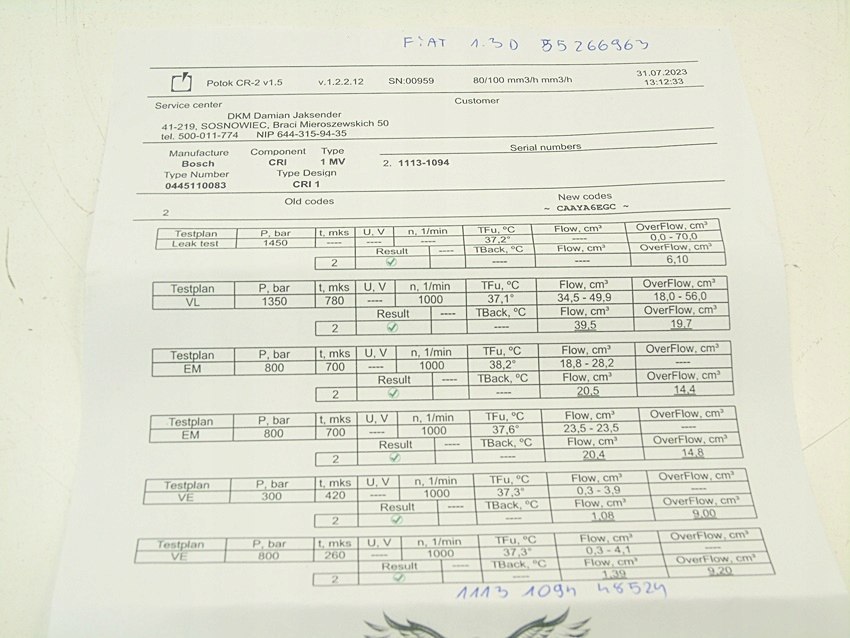 FIAT 1.3D 55266963
Potok CR-2 v1.5 v.1.2.2.12 SN:00959 80/100 mm3/h mm3/h 31.07.2023
13:12:33
Service center Customer
DKM Damian Jaksender
41-219, SOSNOWIEC, Braci Mieroszewskich 50
tel. 500-011-774 NIP 644-315-94-35
Manufacture Component Type Serial numbers
Bosch CRI 1 MV 2. 1113-1094
Type Number Type Design
0445110083 CRI 1
Old codes New codes
2 ~ CAAYA6EGC ~
Testplan P, bar t, mks U, V n, 1/min TFu, ºC Flow, cm³ OverFlow, cm³
Leak test 1450 ---- ---- ---- 37,2° ---- 0,0 - 70,0
Result ---- TBack, ºC Flow, cm³ OverFlow, cm³
2 ---- ---- 6,10
Testplan P, bar t, mks U, V n, 1/min TFu, ºC Flow, cm³ OverFlow, cm³
VL 1350 780 ---- 1000 37,1° 34,5 - 49,9 18,0 - 56,0
Result ---- TBack, ºC Flow, cm³ OverFlow, cm³
2 ---- 39,5 19,7
Testplan P, bar t, mks U, V n, 1/min TFu, ºC Flow, cm³ OverFlow, cm³
EM 800 700 ---- 1000 38,2° 18,8 - 28,2 ----
Result ---- TBack, ºC Flow, cm³ OverFlow, cm³
2 ---- 20,5 14,4
Testplan P, bar t, mks U, V n, 1/min TFu, ºC Flow, cm³ OverFlow, cm³
EM 800 700 ---- 1000 37,6° 23,5 - 23,5 ----
Result ---- TBack, ºC Flow, cm³ OverFlow, cm³
2 ---- 20,4 14,8
Testplan P, bar t, mks U, V n, 1/min TFu, ºC Flow, cm³ OverFlow, cm³
VE 300 420 ---- 1000 37,3° 0,3 - 3,9 ----
Result ---- TBack, ºC Flow, cm³ OverFlow, cm³
2 ---- 1,08 9,00
Testplan P, bar t, mks U, V n, 1/min TFu, ºC Flow, cm³ OverFlow, cm³
VE 800 260 ---- 1000 37,3° 0,3 - 4,1 ----
Result ---- TBack, ºC Flow, cm³ OverFlow, cm³
2 ---- 1,39 9,20
1113 1094 48524